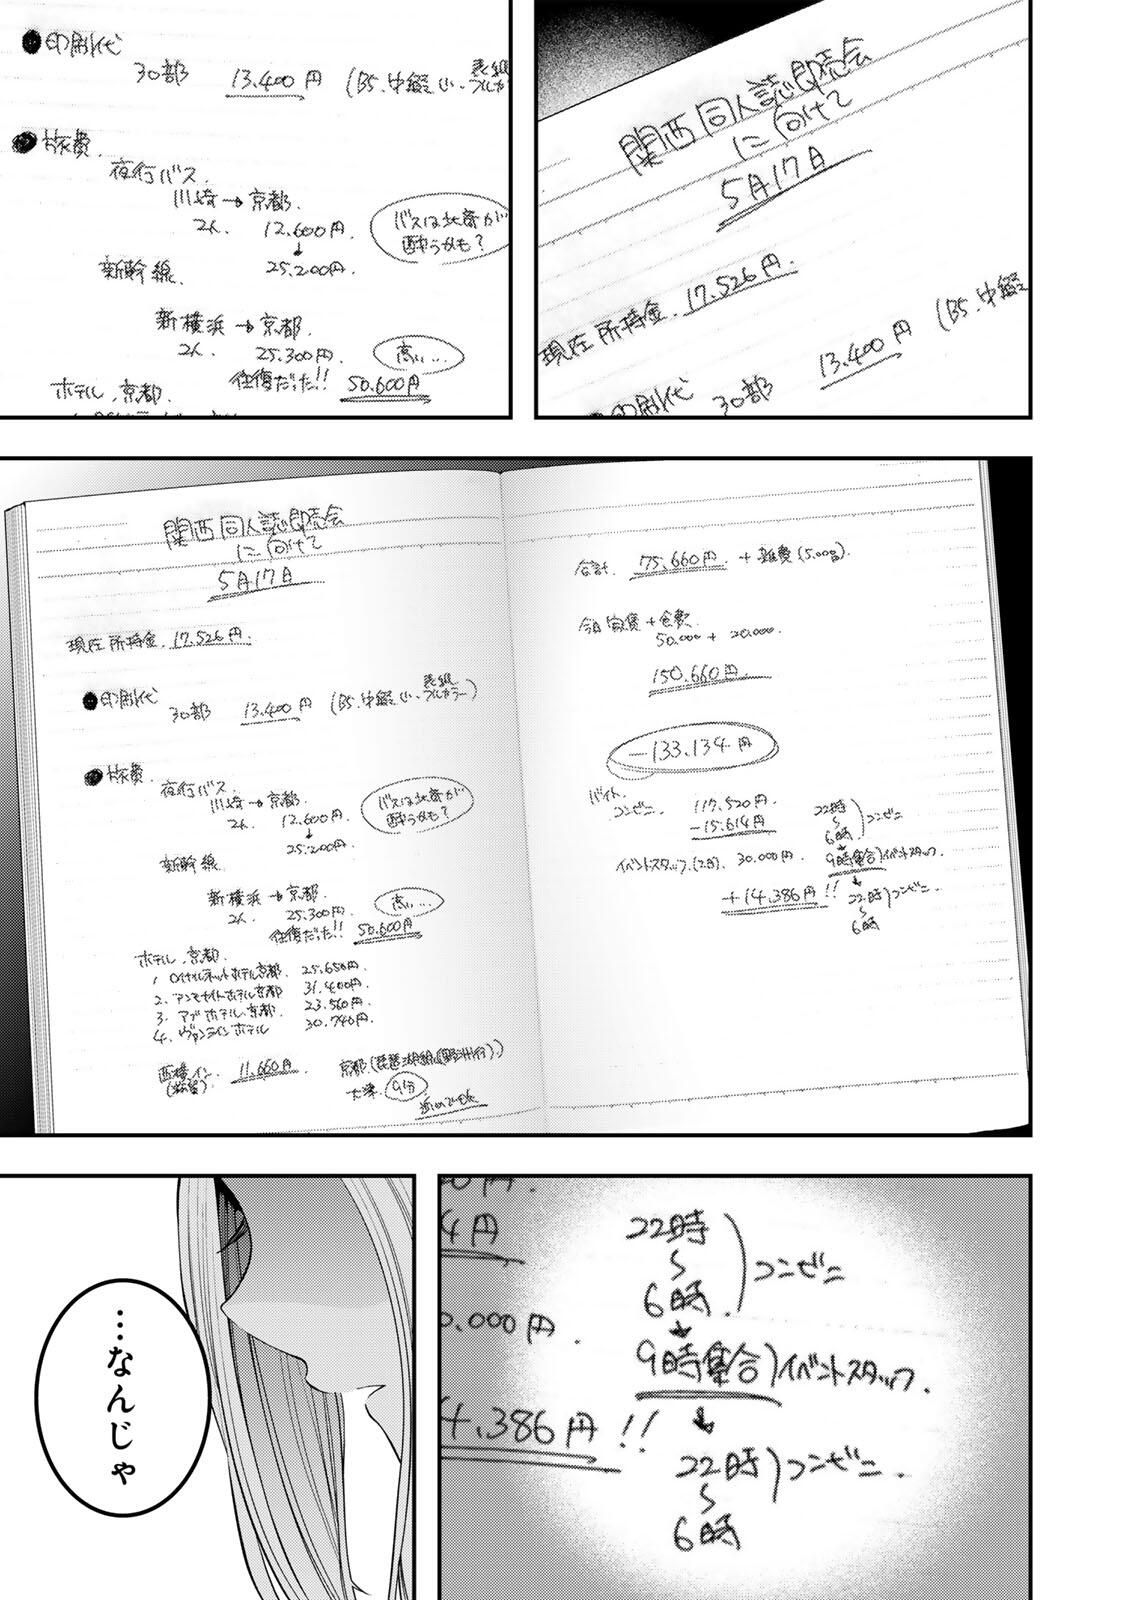 関西同人誌即売会
に向けて
5月17日
現在所持金 17.526円.
13.400円 (B5.中綴
●印刷代 30部
●印刷代
30部 13.400円 (B5.中綴じ.表紙フルカラー
●旅費.
夜行バス.
川崎→京都.
2人. 12.600円.
↓
25.200円.
バスは北斎が
酔うかも?
新幹線.
新横浜→京都.
2人. 25.300円.
高い…
往復だった!! 50.600円
ホテル.京都.
関西同人誌即売会
に向けて
5月17日
現在所持金.17.526円.
●印刷代
30部 13.400円 (B5.中綴じ.表紙フルカラー)
●旅費.
夜行バス.
川崎→京都.
2人. 12.600円.
↓
25.200円.
バスは北斎が
酔うかも?
新幹線
新横浜→京都.
2人. 25.300円
高い…
往復だった!! 50.600円
ホテル.京都.
1. ロイヤルネットホテル京都. 25.650円.
2. アンモナイトホテル京都 31.400円.
3. アブホテル.京都. 23.560円.
4. ヴァンラインホテル 30.740円.
西横イン. 11.660円.
京都(琵琶湖線(野洲行).)
大津. 9分.
合計. 75.660円 + 雑費(5.000).
今月家賃+食費.
50.000 + 20.000.
150.660円.
-133.134円
バイト.
コンビニ 117.520円.
-15.614円
イベントスタッフ.(2日). 30.000円.
+14.386円!!
22時
~
6時.
)コンビニ
↓
9時集合)イベントスタッフ.
↓
22時
~
6時
)コンビニ.
4円
0.000円.
4.386円!!
22時
~
6時.
)コンビニ
↓
9時集合)イベントスタッフ.
↓
22時
~
6時
)コンビニ.
…なんじゃ